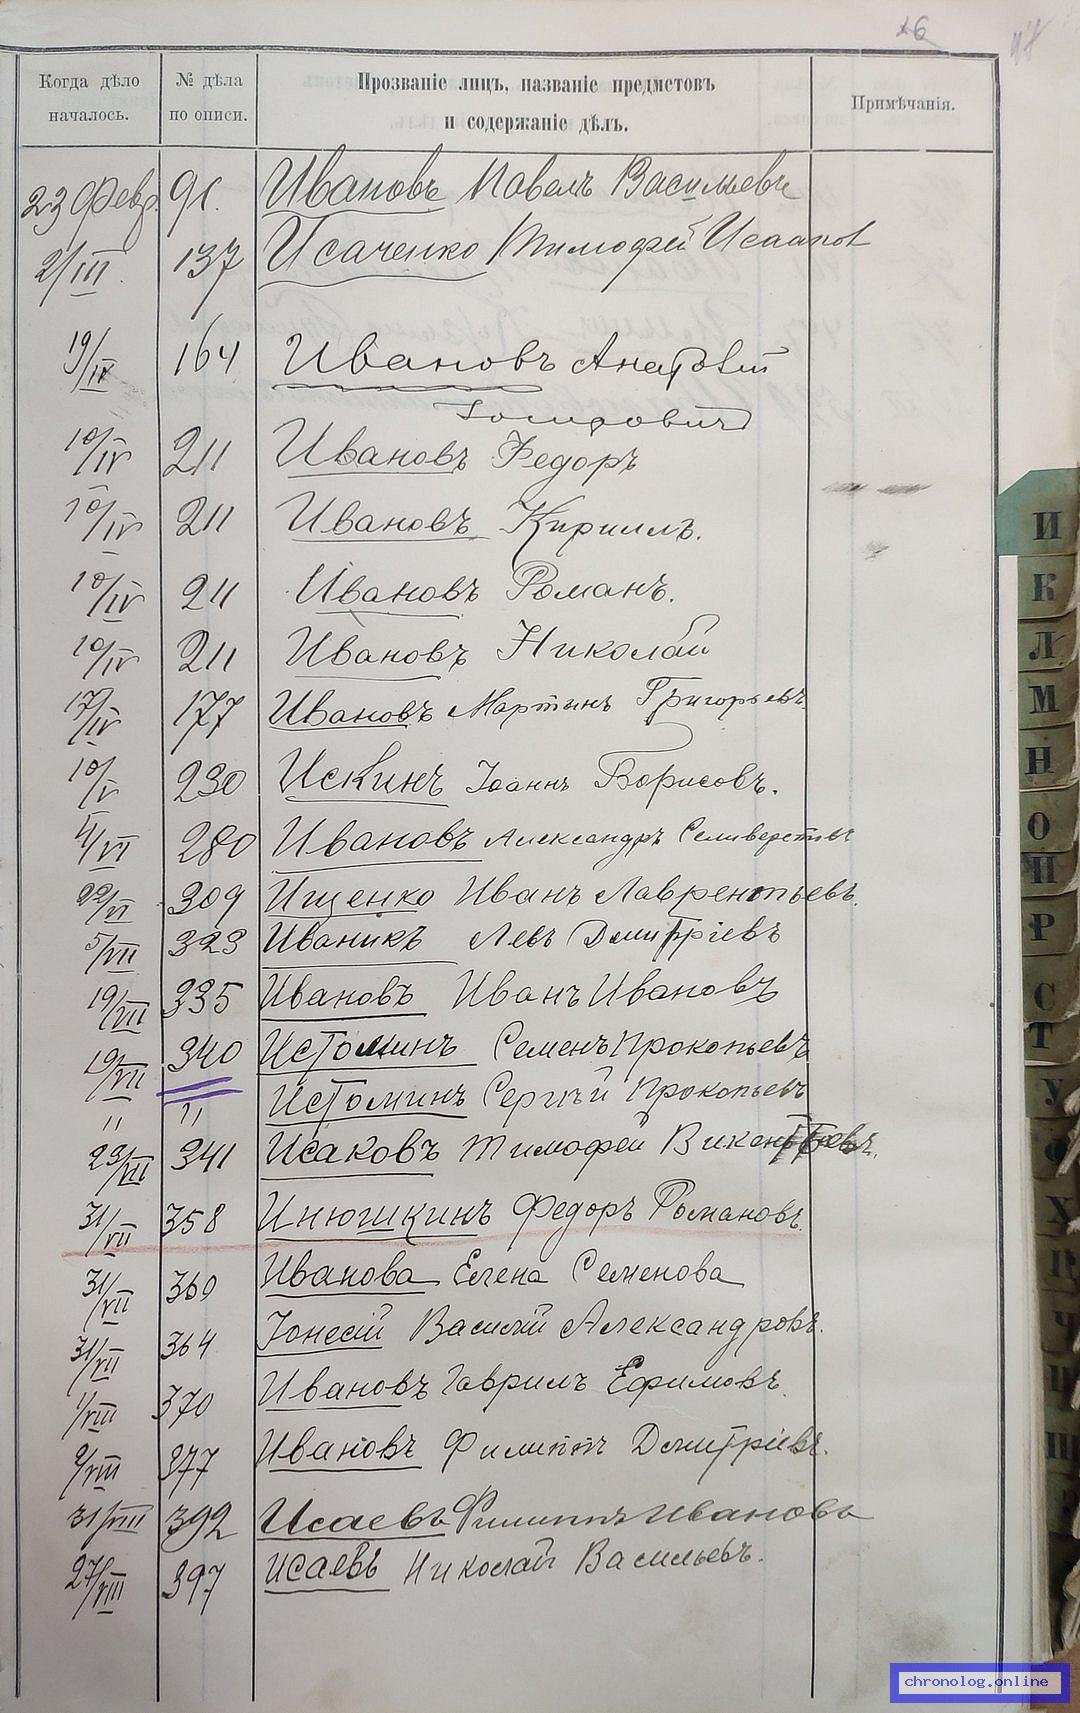 46
Когда дѣло началось.
№ дѣла по описи.
Прозваніе лицъ, названіе предметовъ и содержаніе дѣлъ.
Примѣчанія.
23 Февр. 91. Ивановъ Павелъ Васильевъ
2/III 137 Исаченко Тимофей Исааков
19/IV 164 Ивановъ Анатолій
10/IV 211 Ивановъ Федоръ
10/IV 211 Ивановъ Кириллъ.
10/IV 211 Ивановъ Романъ.
10/IV 211 Ивановъ Николай
17/IV 177 Ивановъ Мартинъ Григорьевъ.
10/V 230 Искинъ Іоаннъ Борисовъ.
4/VI 280 Ивановъ Александръ Селиверстовъ
22/VI 309 Ищенко Иванъ Лаврентьевъ.
5/VII 323 Иваникъ Левъ Дмитріевъ
19/VII 335 Ивановъ Иванъ Ивановъ
19/VII 340 Истоминъ Семенъ Прокопьевъ
" " Истоминъ Сергѣй Прокопьевъ
23/VII 341 Исаковъ Тимофей Викентьевъ.
31/VII 358 Инюшкинъ Федоръ Романовъ.
31/VII 360 Иванова Елена Семенова
31/VII 364 Іонесій Василій Александровъ.
1/VIII 370 Ивановъ Гаврилъ Ефимовъ.
9/VIII 377 Ивановъ Филиппъ Дмитріевъ.
31/VIII 392 Исаевъ Филиппъ Ивановъ
27/VIII 397 Исаевъ Николай Васильевъ.
И
К
Л
М
Н
О
П
Р
С
Т
У
Х
Ч
Ш
Щ
chronolog.online